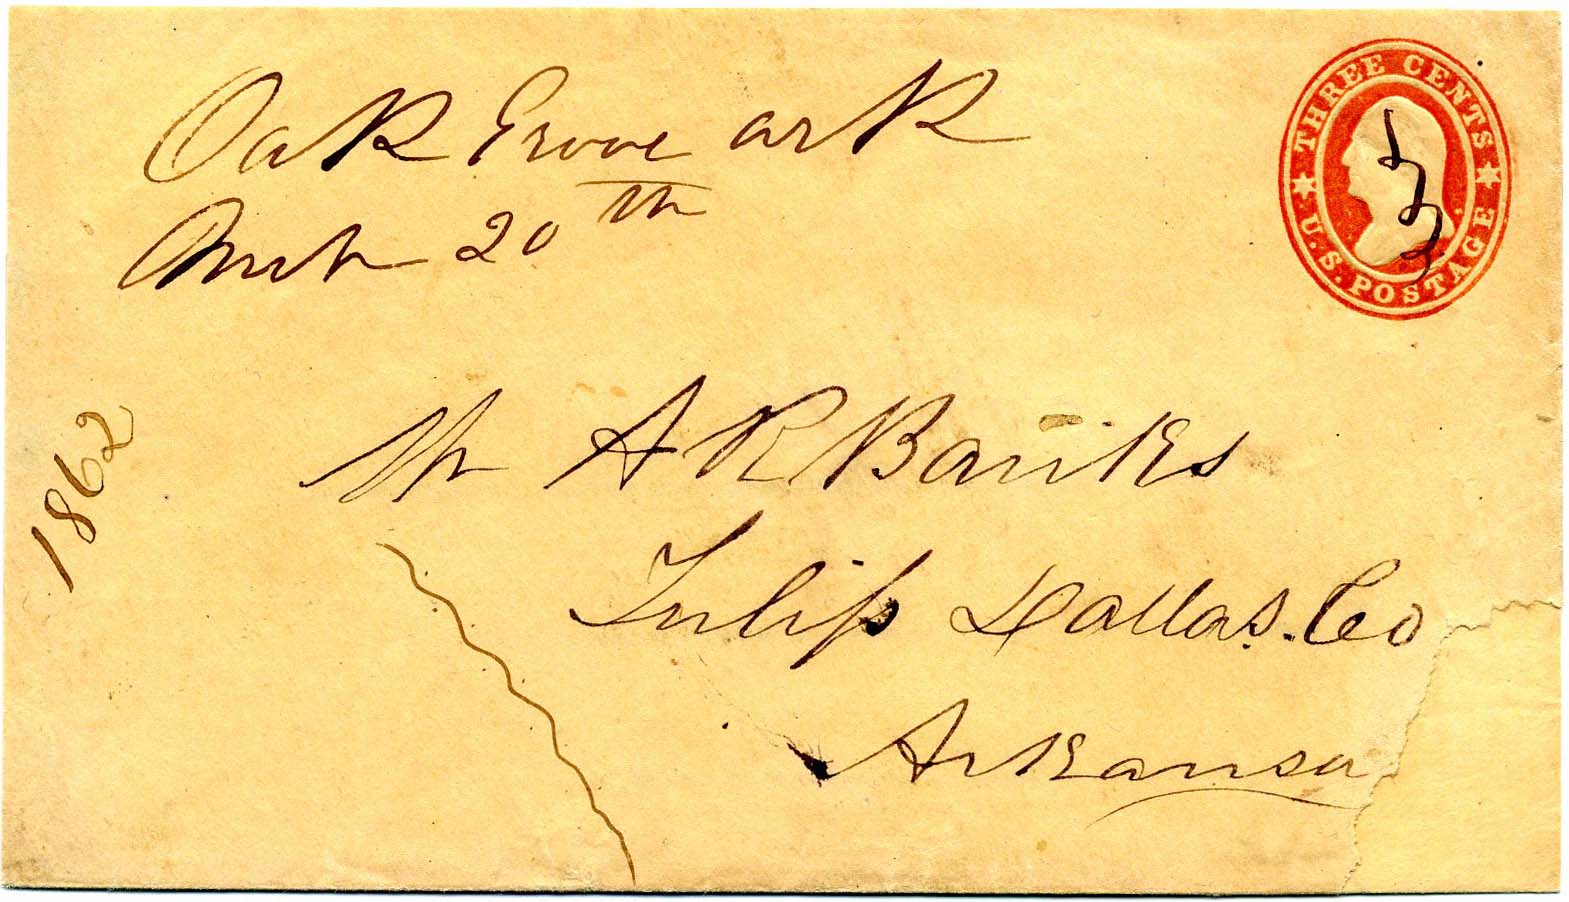 Oak Grove ark
Mch 20th
THREE CENTS
U.S. POSTAGE
1862
Mr A R Banks
Tulip Dallas. Co
Arkansa